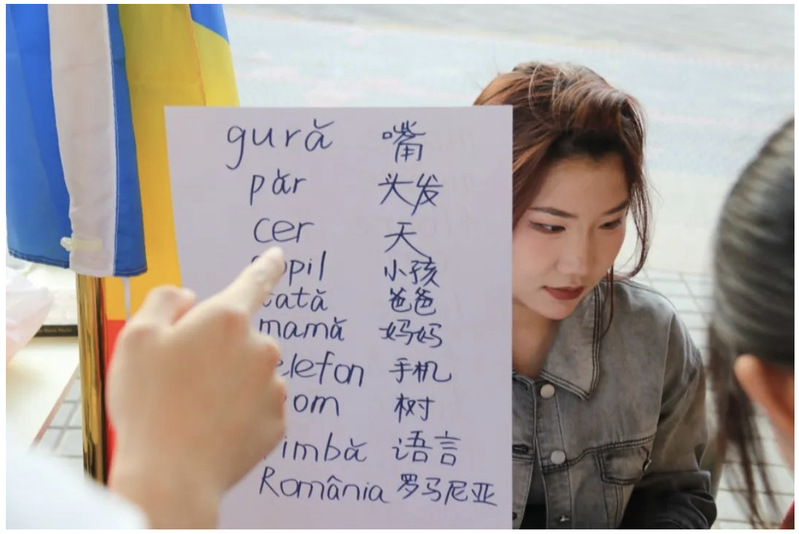 gură 嘴
păr 头发
cer 天
copil 小孩
tată 爸爸
mamă 妈妈
telefon 手机
pom 树
limbă 语言
România 罗马尼亚